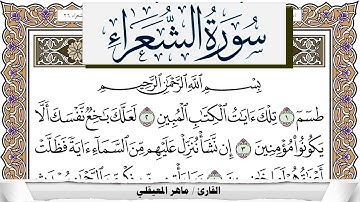 سُورَةُ الشُّعَرَاءِ
بِسْمِ اللَّهِ الرَّحْمَٰنِ الرَّحِيمِ
طسٓمٓ ١ تِلْكَ ءَايَٰتُ ٱلْكِتَٰبِ ٱلْمُبِينِ ٢ لَعَلَّكَ بَٰخِعٌ نَّفْسَكَ أَلَّا
يَكُونُوا۟ مُؤْمِنِينَ ٣ إِن نَّشَأْ نُنَزِّلْ عَلَيْهِم مِّنَ ٱلسَّمَآءِ ءَايَةً فَظَلَّتْ
القارئ / ماهر المعيقلي